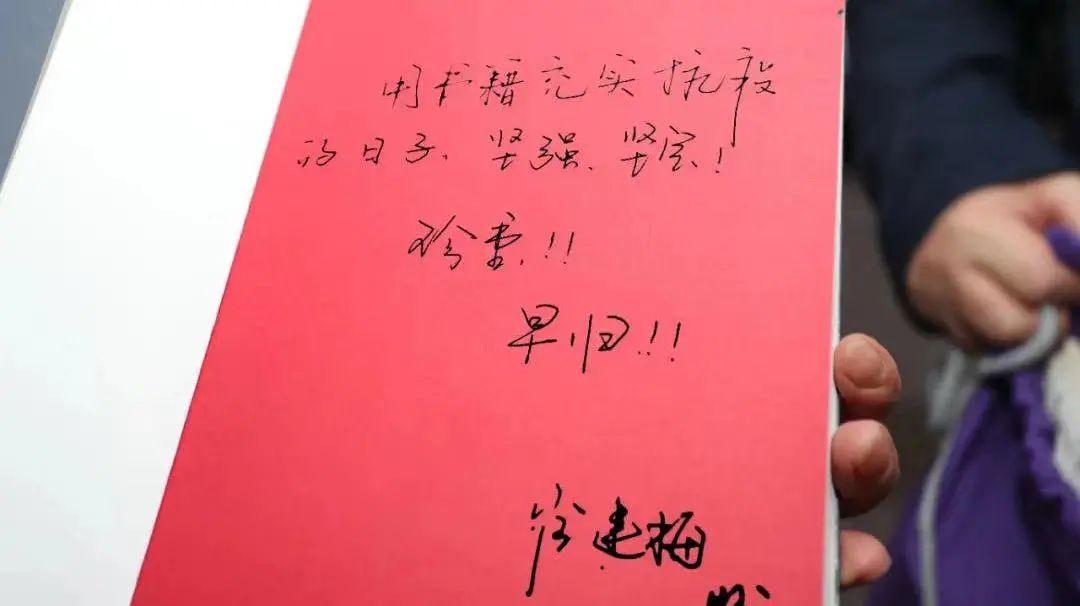 用书籍充实抗疫
的日子、坚强、坚定！
珍重！！
早归！！
建梅